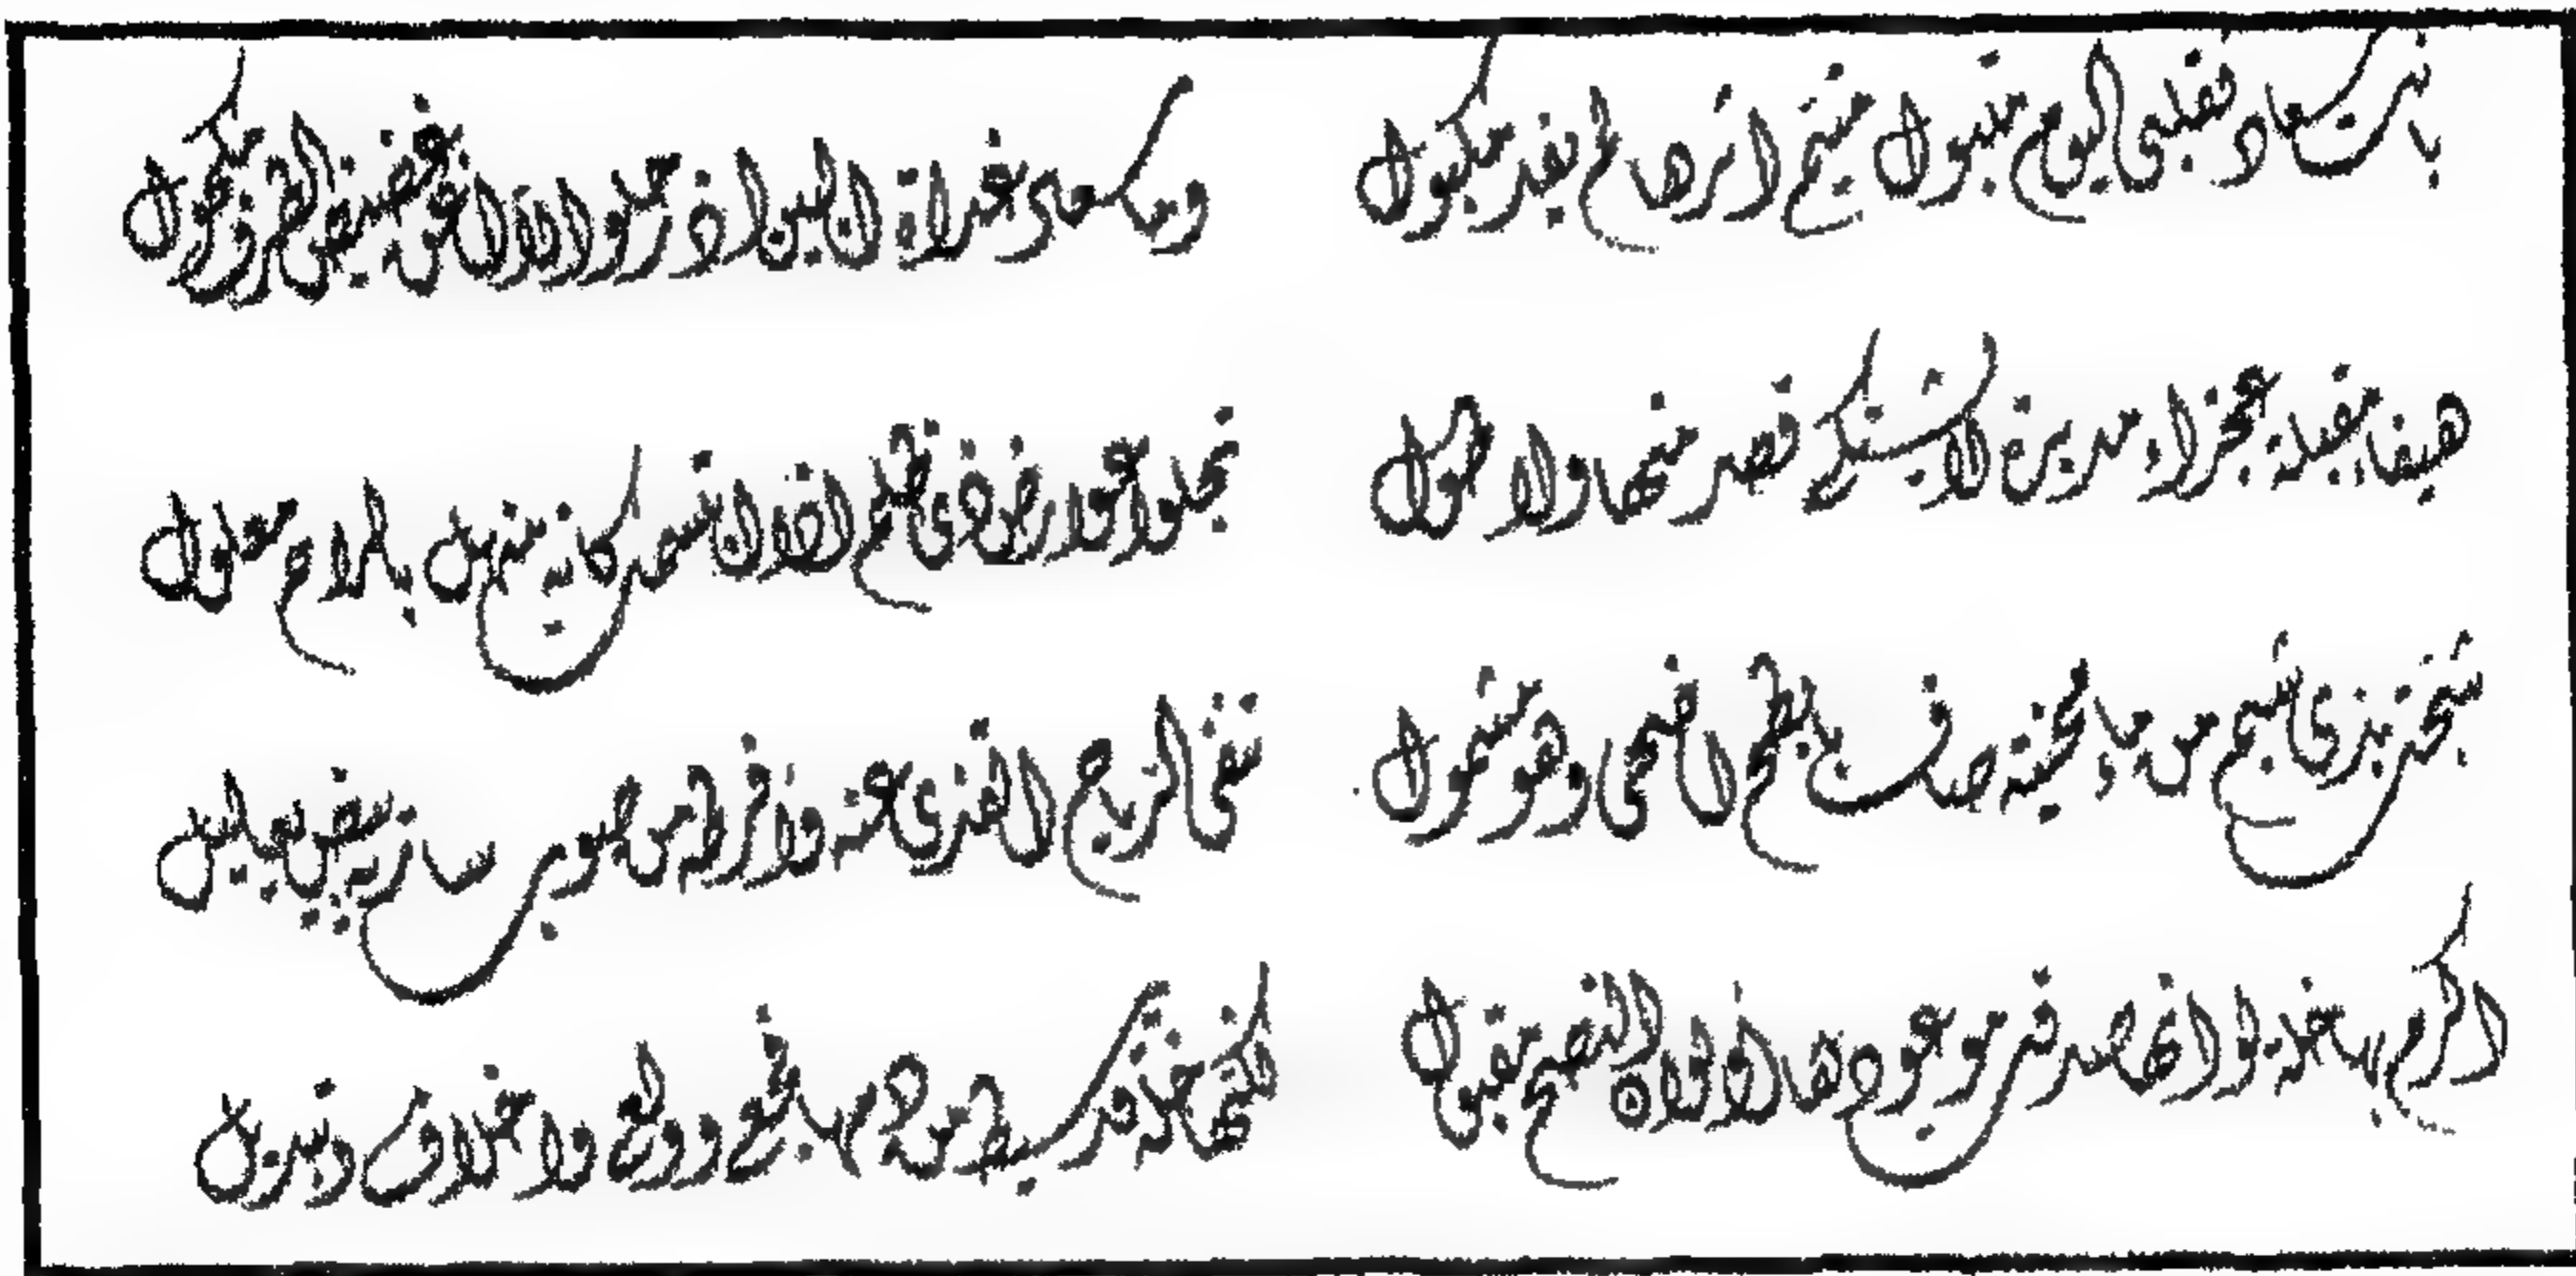 بانت سعاد فقلبي اليوم متبول متيم اثرها لم يفد مكبول
وما سعاد غداة البين اذ رحلوا الا اغن غضيض الطرف مكحول
هيفاء مقبلة عجزاء مدبرة لا يشتكى قصر منها ولا طول
تجلوا عوارض ذي ظلم اذا ابتسمت كانه منهل بالراح معلول
شجت بذي شبم من ماء محنية صاف بابطح اضحى وهو مشمول
تنفي الرياح القذى عنه وافرطه من صوب سارية بيض يعاليل
اكرم بها خلة لو انها صدقت موعودها او لو ان النصح مقبول
لكنها خلة قد سيط من دمها فجع وولع واخلاف وتبديل